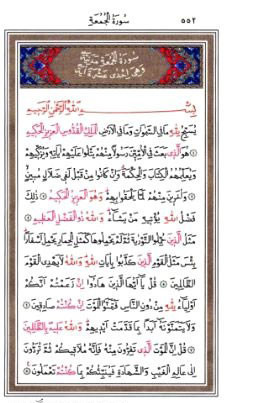 سُورَةُ الْجُمُعَةِ ٥٥٢
سُورَةُ الْجُمُعَةِ مَدَنِيَّةٌ
وَهِيَ إِحْدَى عَشْرَةَ آيَةً
بِسْمِ اللّٰهِ الرَّحْمٰنِ الرَّحِيمِ
يُسَبِّحُ لِلّٰهِ مَا فِي السَّمٰوَاتِ وَمَا فِي الْأَرْضِ الْمَلِكِ الْقُدُّوسِ الْعَزِيزِ الْحَكِيمِ
۝ هُوَ الَّذِي بَعَثَ فِي الْأُمِّيِّينَ رَسُولًا مِنْهُمْ يَتْلُوا عَلَيْهِمْ اٰيَاتِهِ وَيُزَكِّيهِمْ
وَيُعَلِّمُهُمُ الْكِتَابَ وَالْحِكْمَةَ وَإِنْ كَانُوا مِنْ قَبْلُ لَفِي ضَلَالٍ مُبِينٍ
۝ وَاٰخَرِينَ مِنْهُمْ لَمَّا يَلْحَقُوا بِهِمْ وَهُوَ الْعَزِيزُ الْحَكِيمُ ۝ ذٰلِكَ
فَضْلُ اللّٰهِ يُؤْتِيهِ مَنْ يَشَاءُ وَاللّٰهُ ذُو الْفَضْلِ الْعَظِيمِ ۝
مَثَلُ الَّذِينَ حُمِّلُوا التَّوْرٰيةَ ثُمَّ لَمْ يَحْمِلُوهَا كَمَثَلِ الْحِمَارِ يَحْمِلُ أَسْفَارًا
بِئْسَ مَثَلُ الْقَوْمِ الَّذِينَ كَذَّبُوا بِاٰيَاتِ اللّٰهِ وَاللّٰهُ لَا يَهْدِي الْقَوْمَ
الظَّالِمِينَ ۝ قُلْ يَا أَيُّهَا الَّذِينَ هَادُوا إِنْ زَعَمْتُمْ أَنَّكُمْ
أَوْلِيَاءُ لِلّٰهِ مِنْ دُونِ النَّاسِ فَتَمَنَّوُا الْمَوْتَ إِنْ كُنْتُمْ صَادِقِينَ ۝
وَلَا يَتَمَنَّوْنَهُ أَبَدًا بِمَا قَدَّمَتْ أَيْدِيهِمْ وَاللّٰهُ عَلِيمٌ بِالظَّالِمِينَ
۝ قُلْ إِنَّ الْمَوْتَ الَّذِي تَفِرُّونَ مِنْهُ فَإِنَّهُ مُلَاقِيكُمْ ثُمَّ تُرَدُّونَ
إِلٰى عَالِمِ الْغَيْبِ وَالشَّهَادَةِ فَيُنَبِّئُكُمْ بِمَا كُنْتُمْ تَعْمَلُونَ ۝